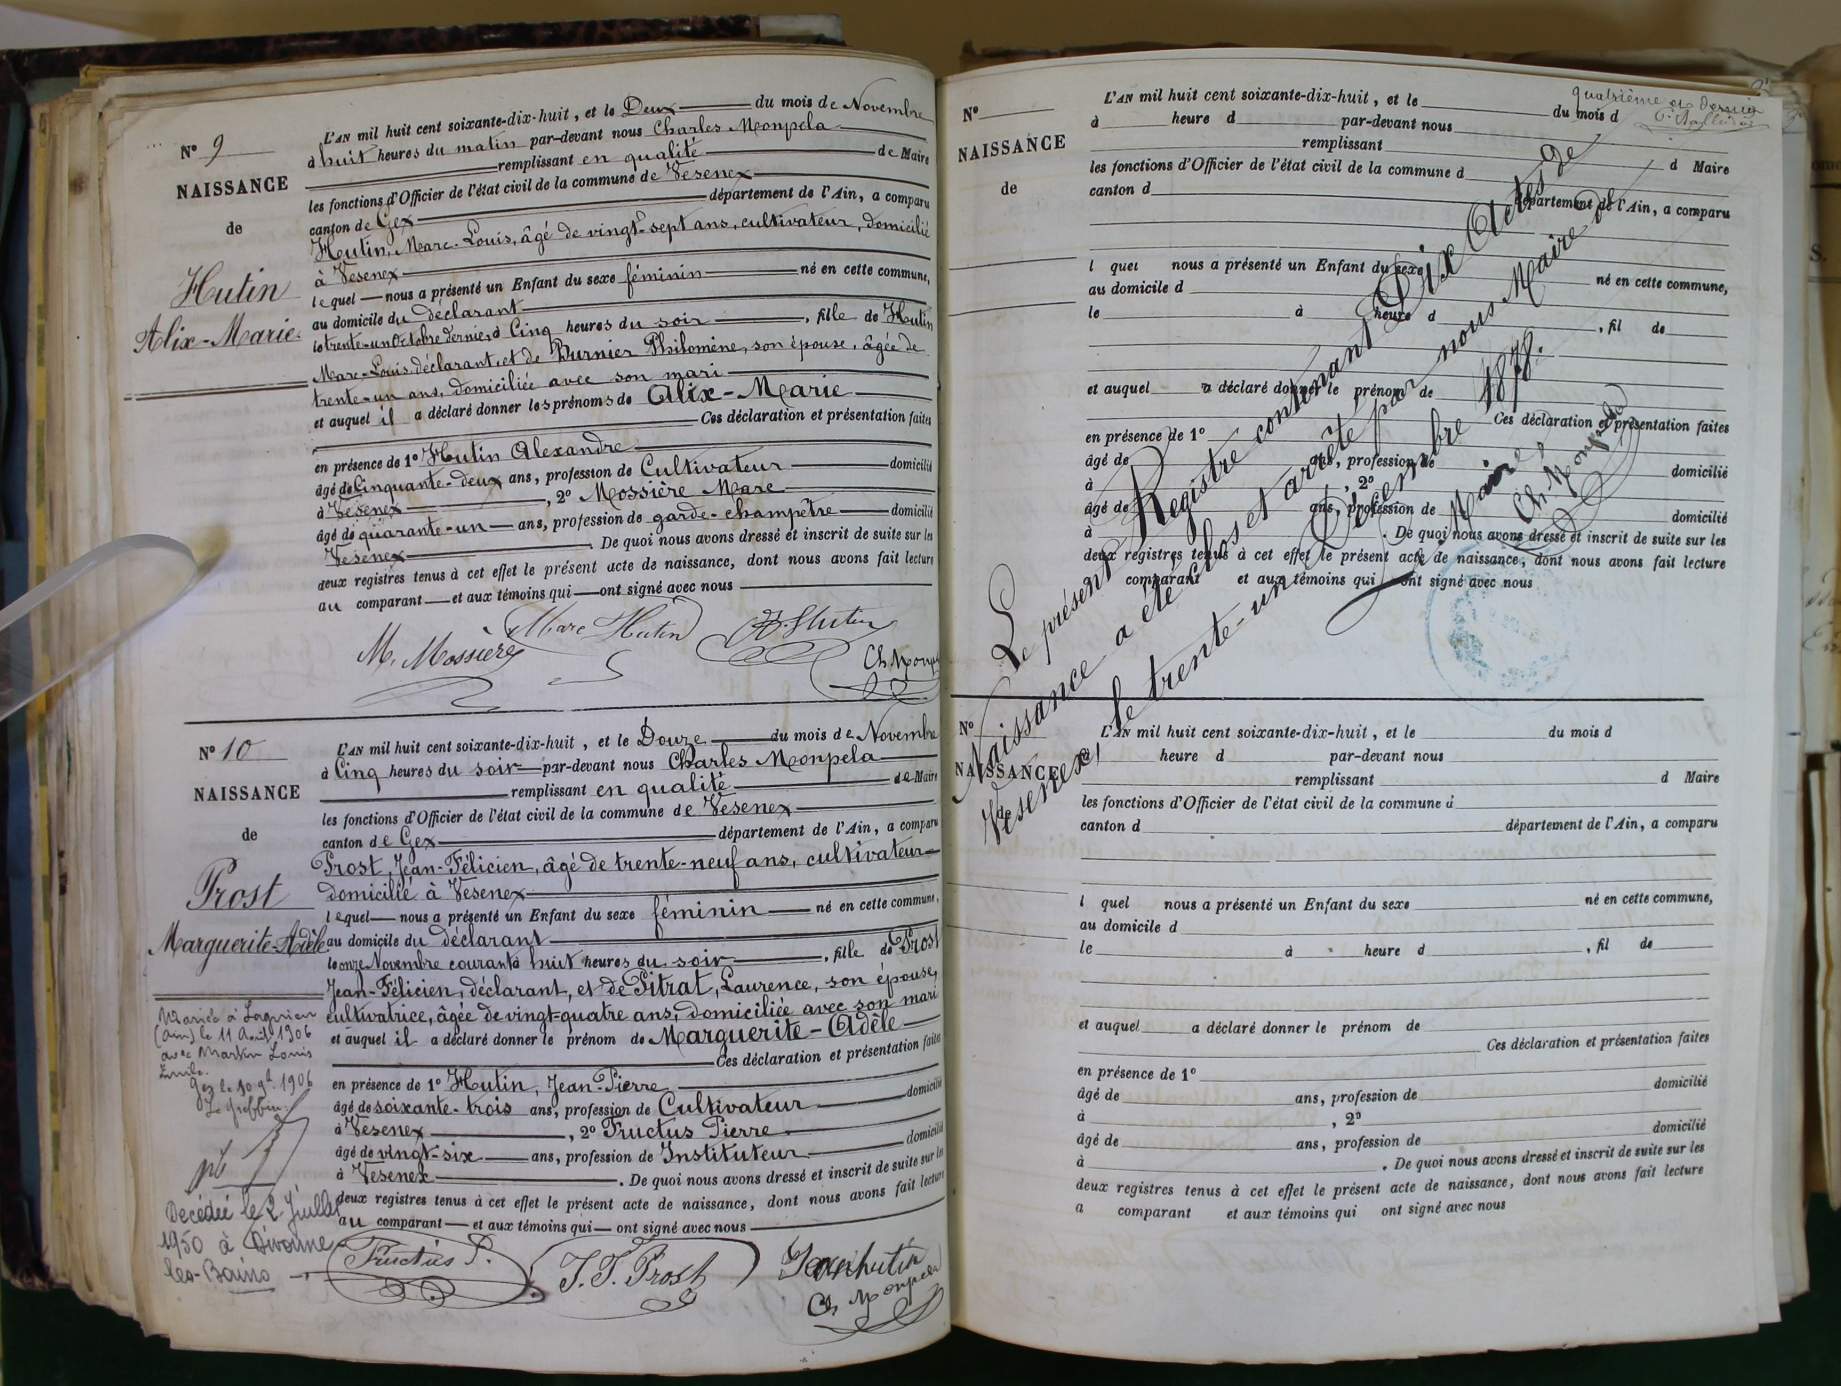 N° 9
NAISSANCE
de
Hutin
Alix-Marie
L'AN mil huit cent soixante-dix-huit, et le Deux du mois de Novembre
à huit heures du matin par-devant nous Charles Monpela
remplissant en qualité de Maire
les fonctions d'Officier de l'état civil de la commune de Vesenex
canton de Gex département de l'Ain, a comparu
Hutin, Marc-Louis, âgé de vingt-sept ans, cultivateur, domicilié
à Vesenex
lequel nous a présenté un Enfant du sexe féminin né en cette commune,
au domicile du déclarant
le trente-un Octobre dernier, à Cinq heures du soir, fille de Hutin
Marc-Louis, déclarant, et de Burnier Philomène, son épouse, âgée de
trente-un ans, domiciliée avec son mari
et auquel il a déclaré donner les prénoms de Alix-Marie
Ces déclaration et présentation faites
en présence de 1° Hutin Alexandre
âgé de Cinquante-deux ans, profession de Cultivateur domicilié
à Vesenex, 2° Mossière Marc
âgé de quarante-un ans, profession de garde-champêtre domicilié
Vesenex. De quoi nous avons dressé et inscrit de suite sur les
deux registres tenus à cet effet le présent acte de naissance, dont nous avons fait lecture
au comparant et aux témoins qui ont signé avec nous
M. Mossière Marc Hutin A. Hutin
Ch. Monpela
N° 10
NAISSANCE
de
Prost
Marguerite-Adèle
L'AN mil huit cent soixante-dix-huit, et le Douze du mois de Novembre
à Cinq heures du soir par-devant nous Charles Monpela
remplissant en qualité de Maire
les fonctions d'Officier de l'état civil de la commune de Vesenex
canton de Gex département de l'Ain, a comparu
Prost, Jean-Félicien, âgé de trente-neuf ans, cultivateur
domicilié à Vesenex
lequel nous a présenté un Enfant du sexe féminin né en cette commune,
au domicile du déclarant
le onze Novembre courant à huit heures du soir, fille de Prost
Jean-Félicien, déclarant, et de Pitrat, Laurence, son épouse,
cultivatrice, âgée de vingt-quatre ans, domiciliée avec son mari
et auquel il a déclaré donner le prénom de Marguerite-Adèle
Ces déclaration et présentation faites
en présence de 1° Hutin, Jean-Pierre
âgé de soixante-trois ans, profession de Cultivateur domicilié
à Vesenex, 2° Fructus Pierre
âgé de vingt-six ans, profession de Instituteur domicilié
à Vesenex. De quoi nous avons dressé et inscrit de suite sur les
deux registres tenus à cet effet le présent acte de naissance, dont nous avons fait lecture
au comparant et aux témoins qui ont signé avec nous
Fructus P. J. F. Prost Jean hutin
Ch Monpela
Mariée à Lagnieu
(Ain) le 11 Août 1906
avec Martin Louis
Emile.
Gex le 10 9bre 1906
Le Greffier
Décédée le 2 Juillet
1950 à Divonne
les-Bains
quatrième et dernier
N°
NAISSANCE
de
L'AN mil huit cent soixante-dix-huit, et le du mois d
à heure d par-devant nous
remplissant d Maire
les fonctions d'Officier de l'état civil de la commune d
canton d département de l'Ain, a comparu
l quel nous a présenté un Enfant du sexe né en cette commune,
au domicile d
le à heure d, fil de
et auquel a déclaré donner le prénom de
Ces déclaration et présentation faites
en présence de 1°
âgé de ans, profession de domicilié
à, 2°
âgé de ans, profession de domicilié
à. De quoi nous avons dressé et inscrit de suite sur les
deux registres tenus à cet effet le présent acte de naissance, dont nous avons fait lecture
comparant et aux témoins qui ont signé avec nous
Le présent Registre contenant Dix Actes de
Naissance a été clos et arrêté par nous Maire de
Vesenex, le trente-un Décembre 1878.
Maire,
Ch. Monpela
N°
NAISSANCE
de
L'AN mil huit cent soixante-dix-huit, et le du mois d
heure d par-devant nous
remplissant d Maire
les fonctions d'Officier de l'état civil de la commune d
canton d département de l'Ain, a comparu
l quel nous a présenté un Enfant du sexe né en cette commune,
au domicile d
le à heure d, fil de
et auquel a déclaré donner le prénom de
Ces déclaration et présentation faites
en présence de 1°
âgé de ans, profession de domicilié
à, 2°
âgé de ans, profession de domicilié
à. De quoi nous avons dressé et inscrit de suite sur les
deux registres tenus à cet effet le présent acte de naissance, dont nous avons fait lecture
a comparant et aux témoins qui ont signé avec nous